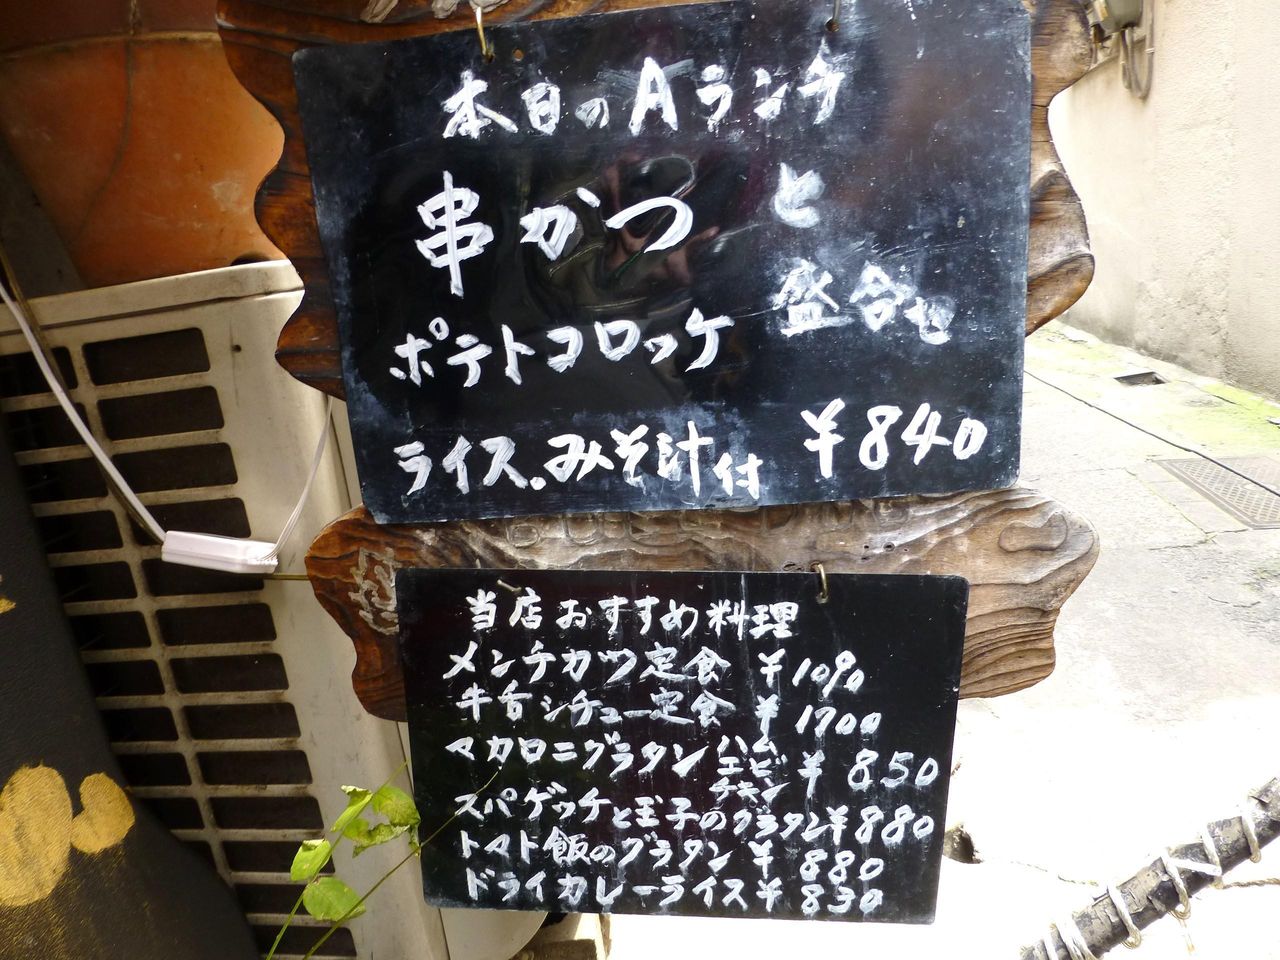 本日のAランチ
串かつ と
ポテトコロッケ 盛合せ
ライス.みそ汁付 ¥840
当店おすすめ料理
メンチカツ定食 ¥1090
牛舌シチュー定食 ¥1700
マカロニグラタン ハム エビ チキン ¥850
スパゲッチと玉子のグラタン¥880
トマト飯のグラタン ¥880
ドライカレーライス¥830